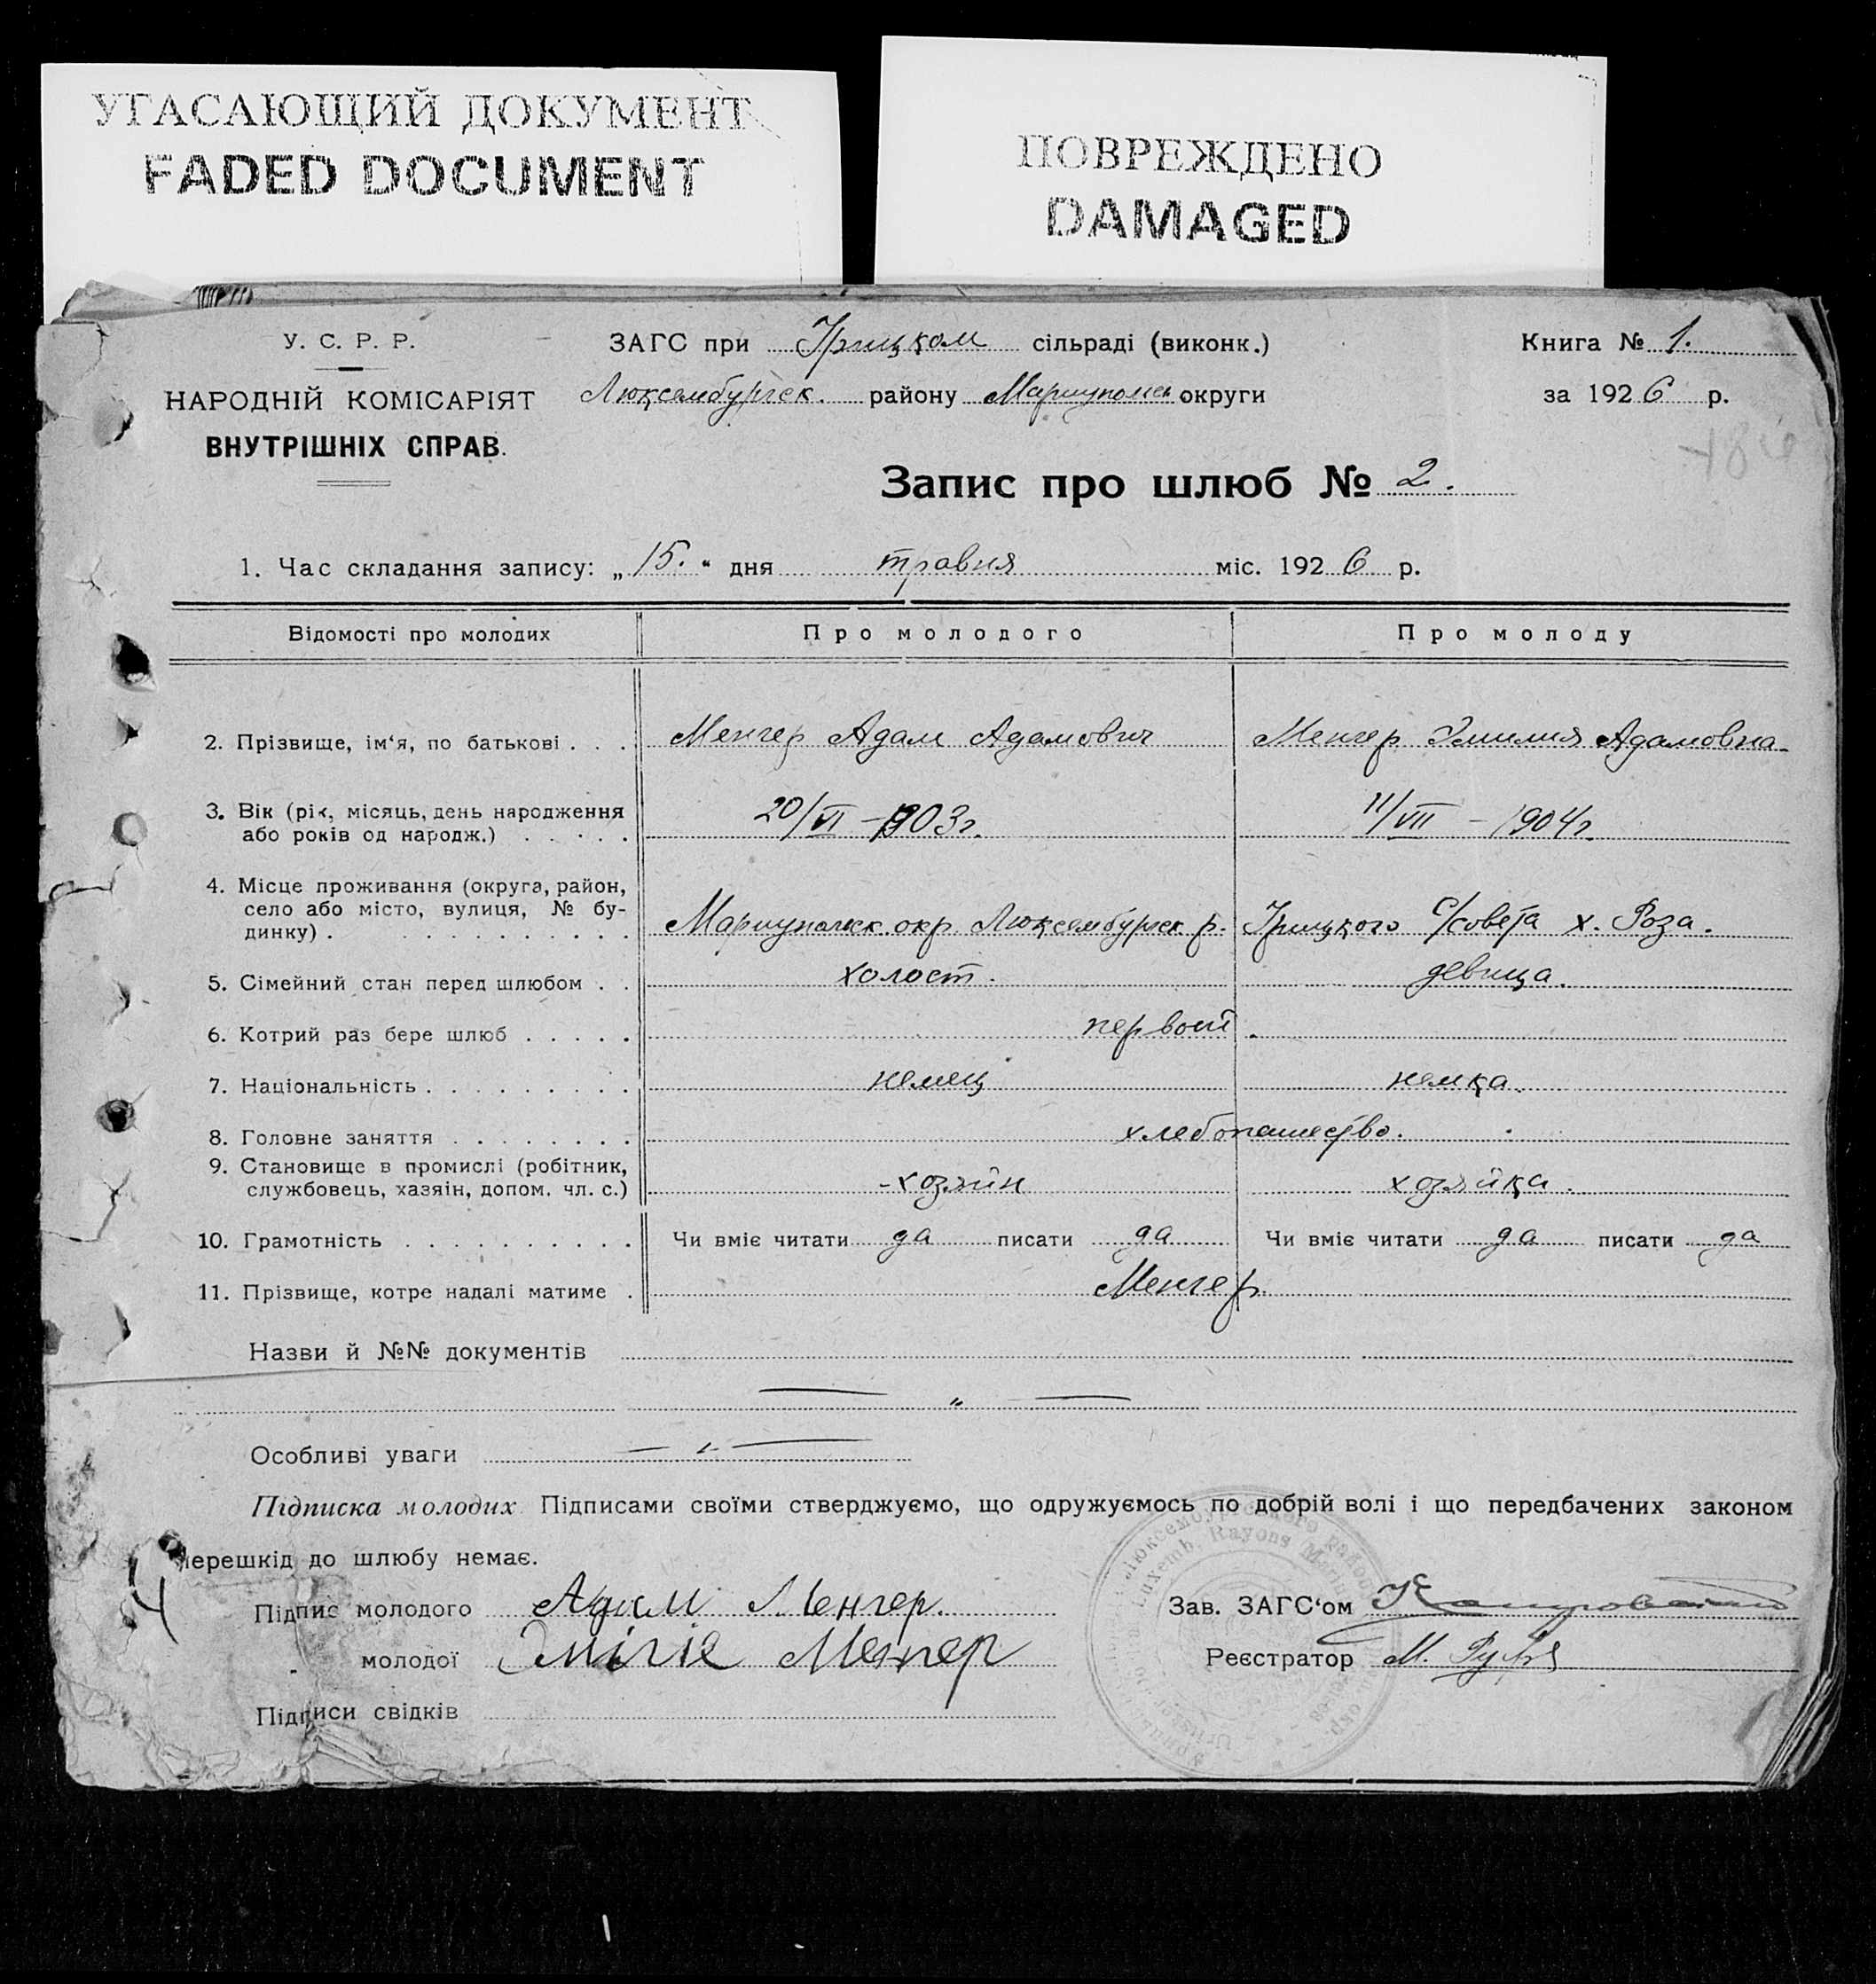 УГАСАЮЩИЙ ДОКУМЕНТ
FADED DOCUMENT
ПОВРЕЖДЕНО
DAMAGED
У. С. Р. Р.
НАРОДНІЙ КОМІСАРІЯТ
ВНУТРІШНІХ СПРАВ.
ЗАГС при Урицком сільраді (виконк.)
Люксембургск. району Мариупольск округи
Книга № 1.
за 1926 р.
Запис про шлюб № 2.
1. Час складання запису: „15.“ дня травня міс. 1926 р.
Відомості про молодих Про молодого Про молоду
2. Прізвище, ім‘я, по батькові . . . Менгер Адам Адамович Менгер Эмилия Адамовна
3. Вік (рік, місяць, день народження
або років од народж.) . . . . . 20/VI – 1903 г. 11/VII – 1904 г.
4. Місце проживання (округа, район,
село або місто, вулиця, № бу-
динку) . . . . . . . . . . . Мариупольск. окр. Люксембургск р. Урицкого с/совета х. Роза.
5. Сімейний стан перед шлюбом . . холост. девица.
6. Котрий раз бере шлюб . . . . . первый.
7. Національність . . . . . . . . . немец немка.
8. Головне заняття . . . . . . . . хлебопашество.
9. Становище в промислі (робітник,
службовець, хазяін, допом. чл. с.) -хозяин хозяйка.
10. Грамотність . . . . . . . . . . Чи вміє читати да писати да Чи вміє читати да писати да
11. Прізвище, котре надалі матиме . Менгер.
Назви й №№ документів
— „ —
Особливі уваги — „ —
Підписка молодих Підписами своїми стверджуємо, що одружуємось по добрій волі і що передбачених законом
перешкід до шлюбу немає.
Підпис молодого Адам Менгер.
молодої Эміліе Менгер
Підписи свідків
Зав. ЗАГС‘ом
Реєстратор М.
Люксембургского район
Luxemb. Rayons Mariu